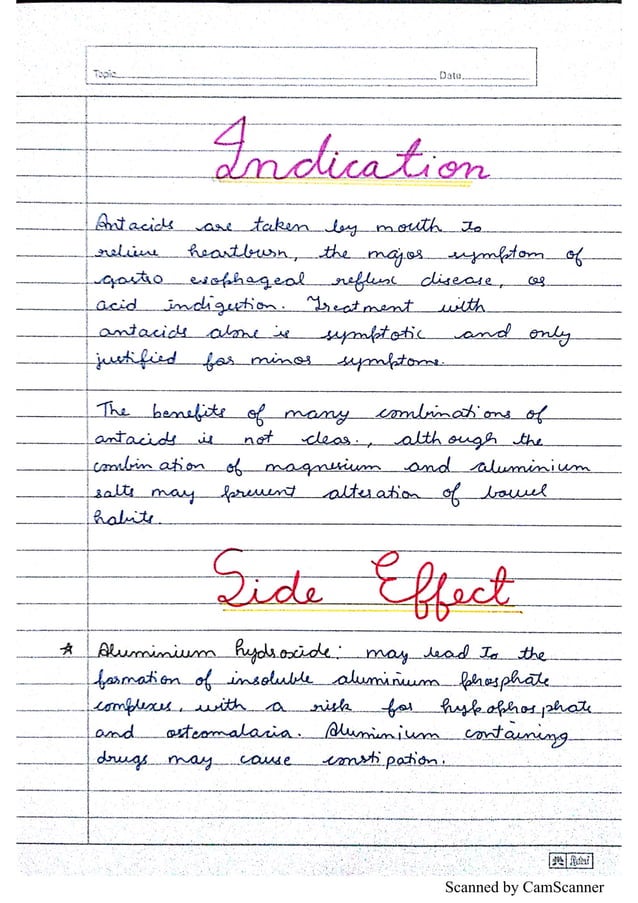 Topic
Date
Indication
Antacids are taken by mouth to
relieve heartburn, the major symptom of
gastro esophageal reflux disease, or
acid indigestion. Treatment with
antacids alone is symptotic and only
justified for minor symptoms.
The benefits of many combinations of
antacids is not clear., although the
combination of magnesium and aluminium
salts may prevent alteration of bowel
habits.
Side Effect
★ Aluminium hydroxide: may lead to the
formation of insoluble aluminium phosphate
complexes, with a risk for hypophosphate
and osteomalacia. Aluminium containing
drugs may cause constipation.
Scanned by CamScanner